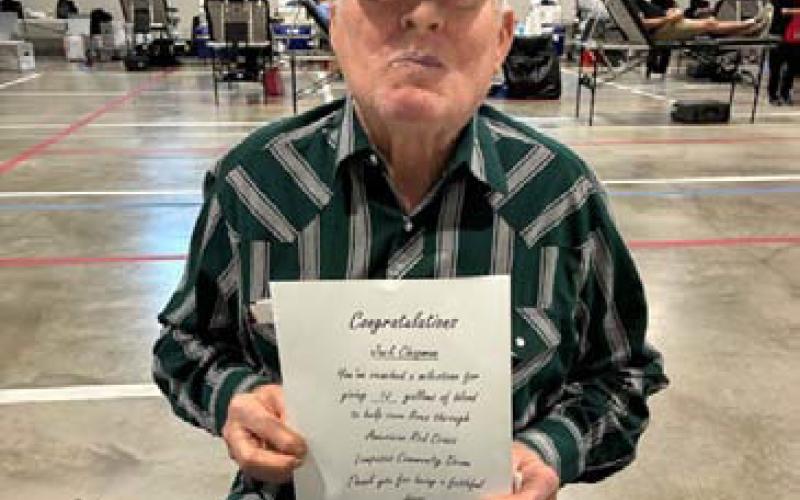 Congratulations
Jack Chapman
You've reached a milestone for
giving 14 gallons of blood
to help save lives through
American Red Cross
Lampasas Community Drive
Thank you for being a faithful
donor